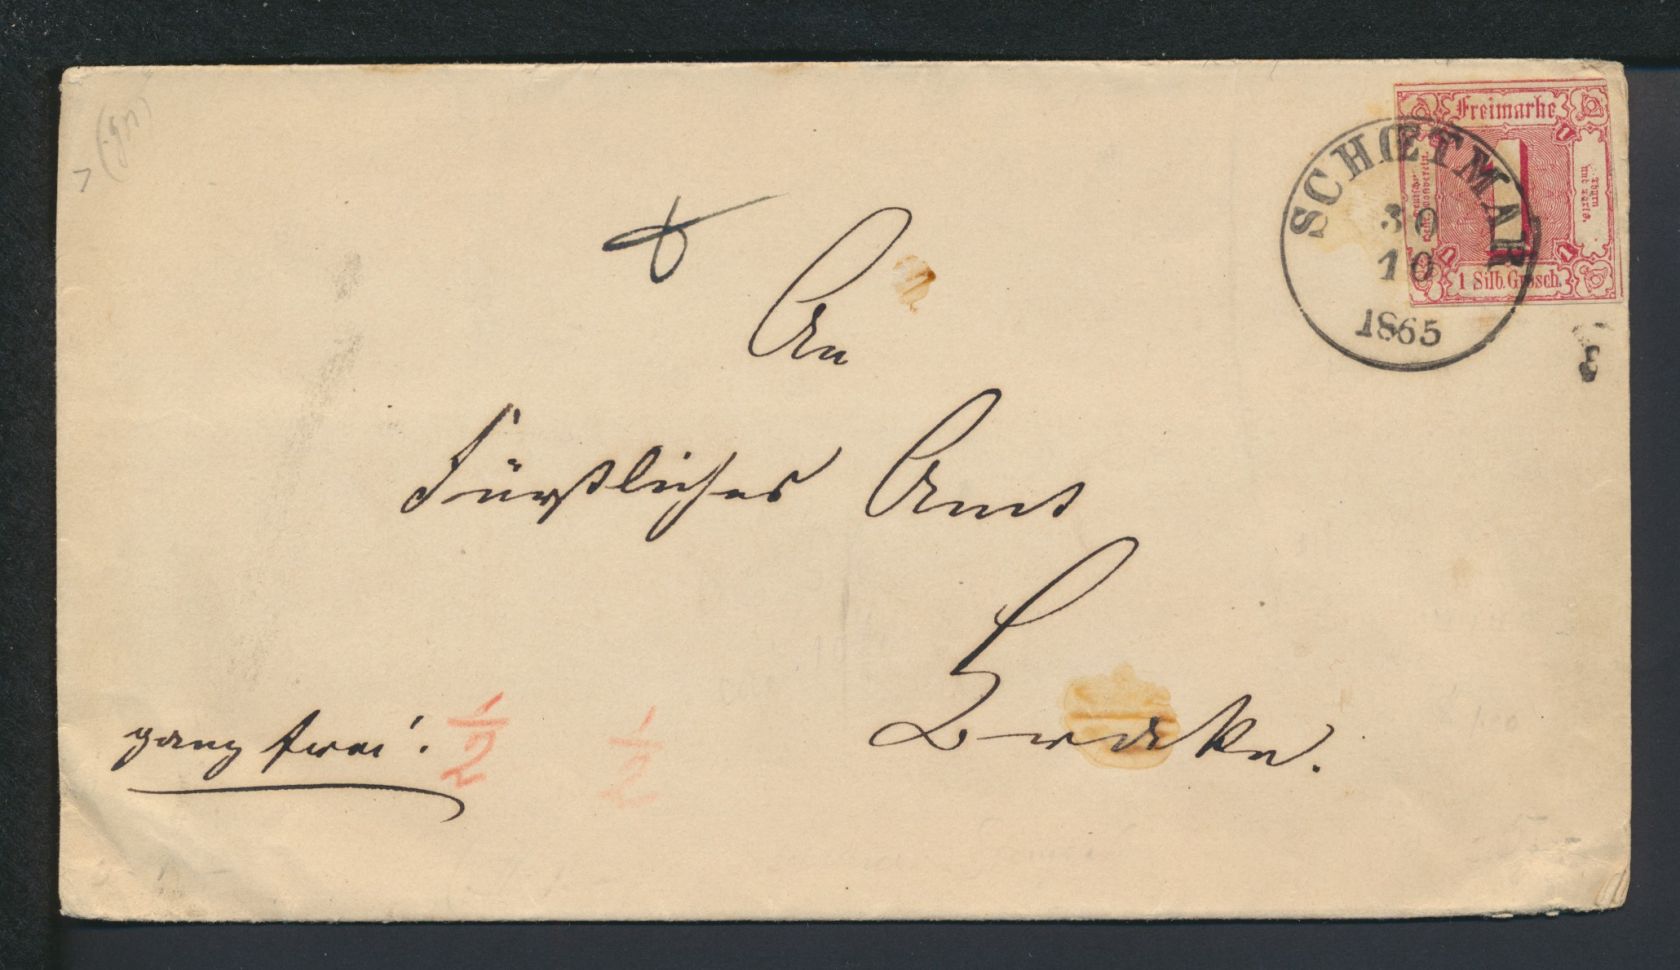 Freimarke
1
1 Silb. Grosch.
SCHŒTMAR
30
10
1865
An
Fürstliches Amt
Brake.
ganz frei.
1/2
1/2